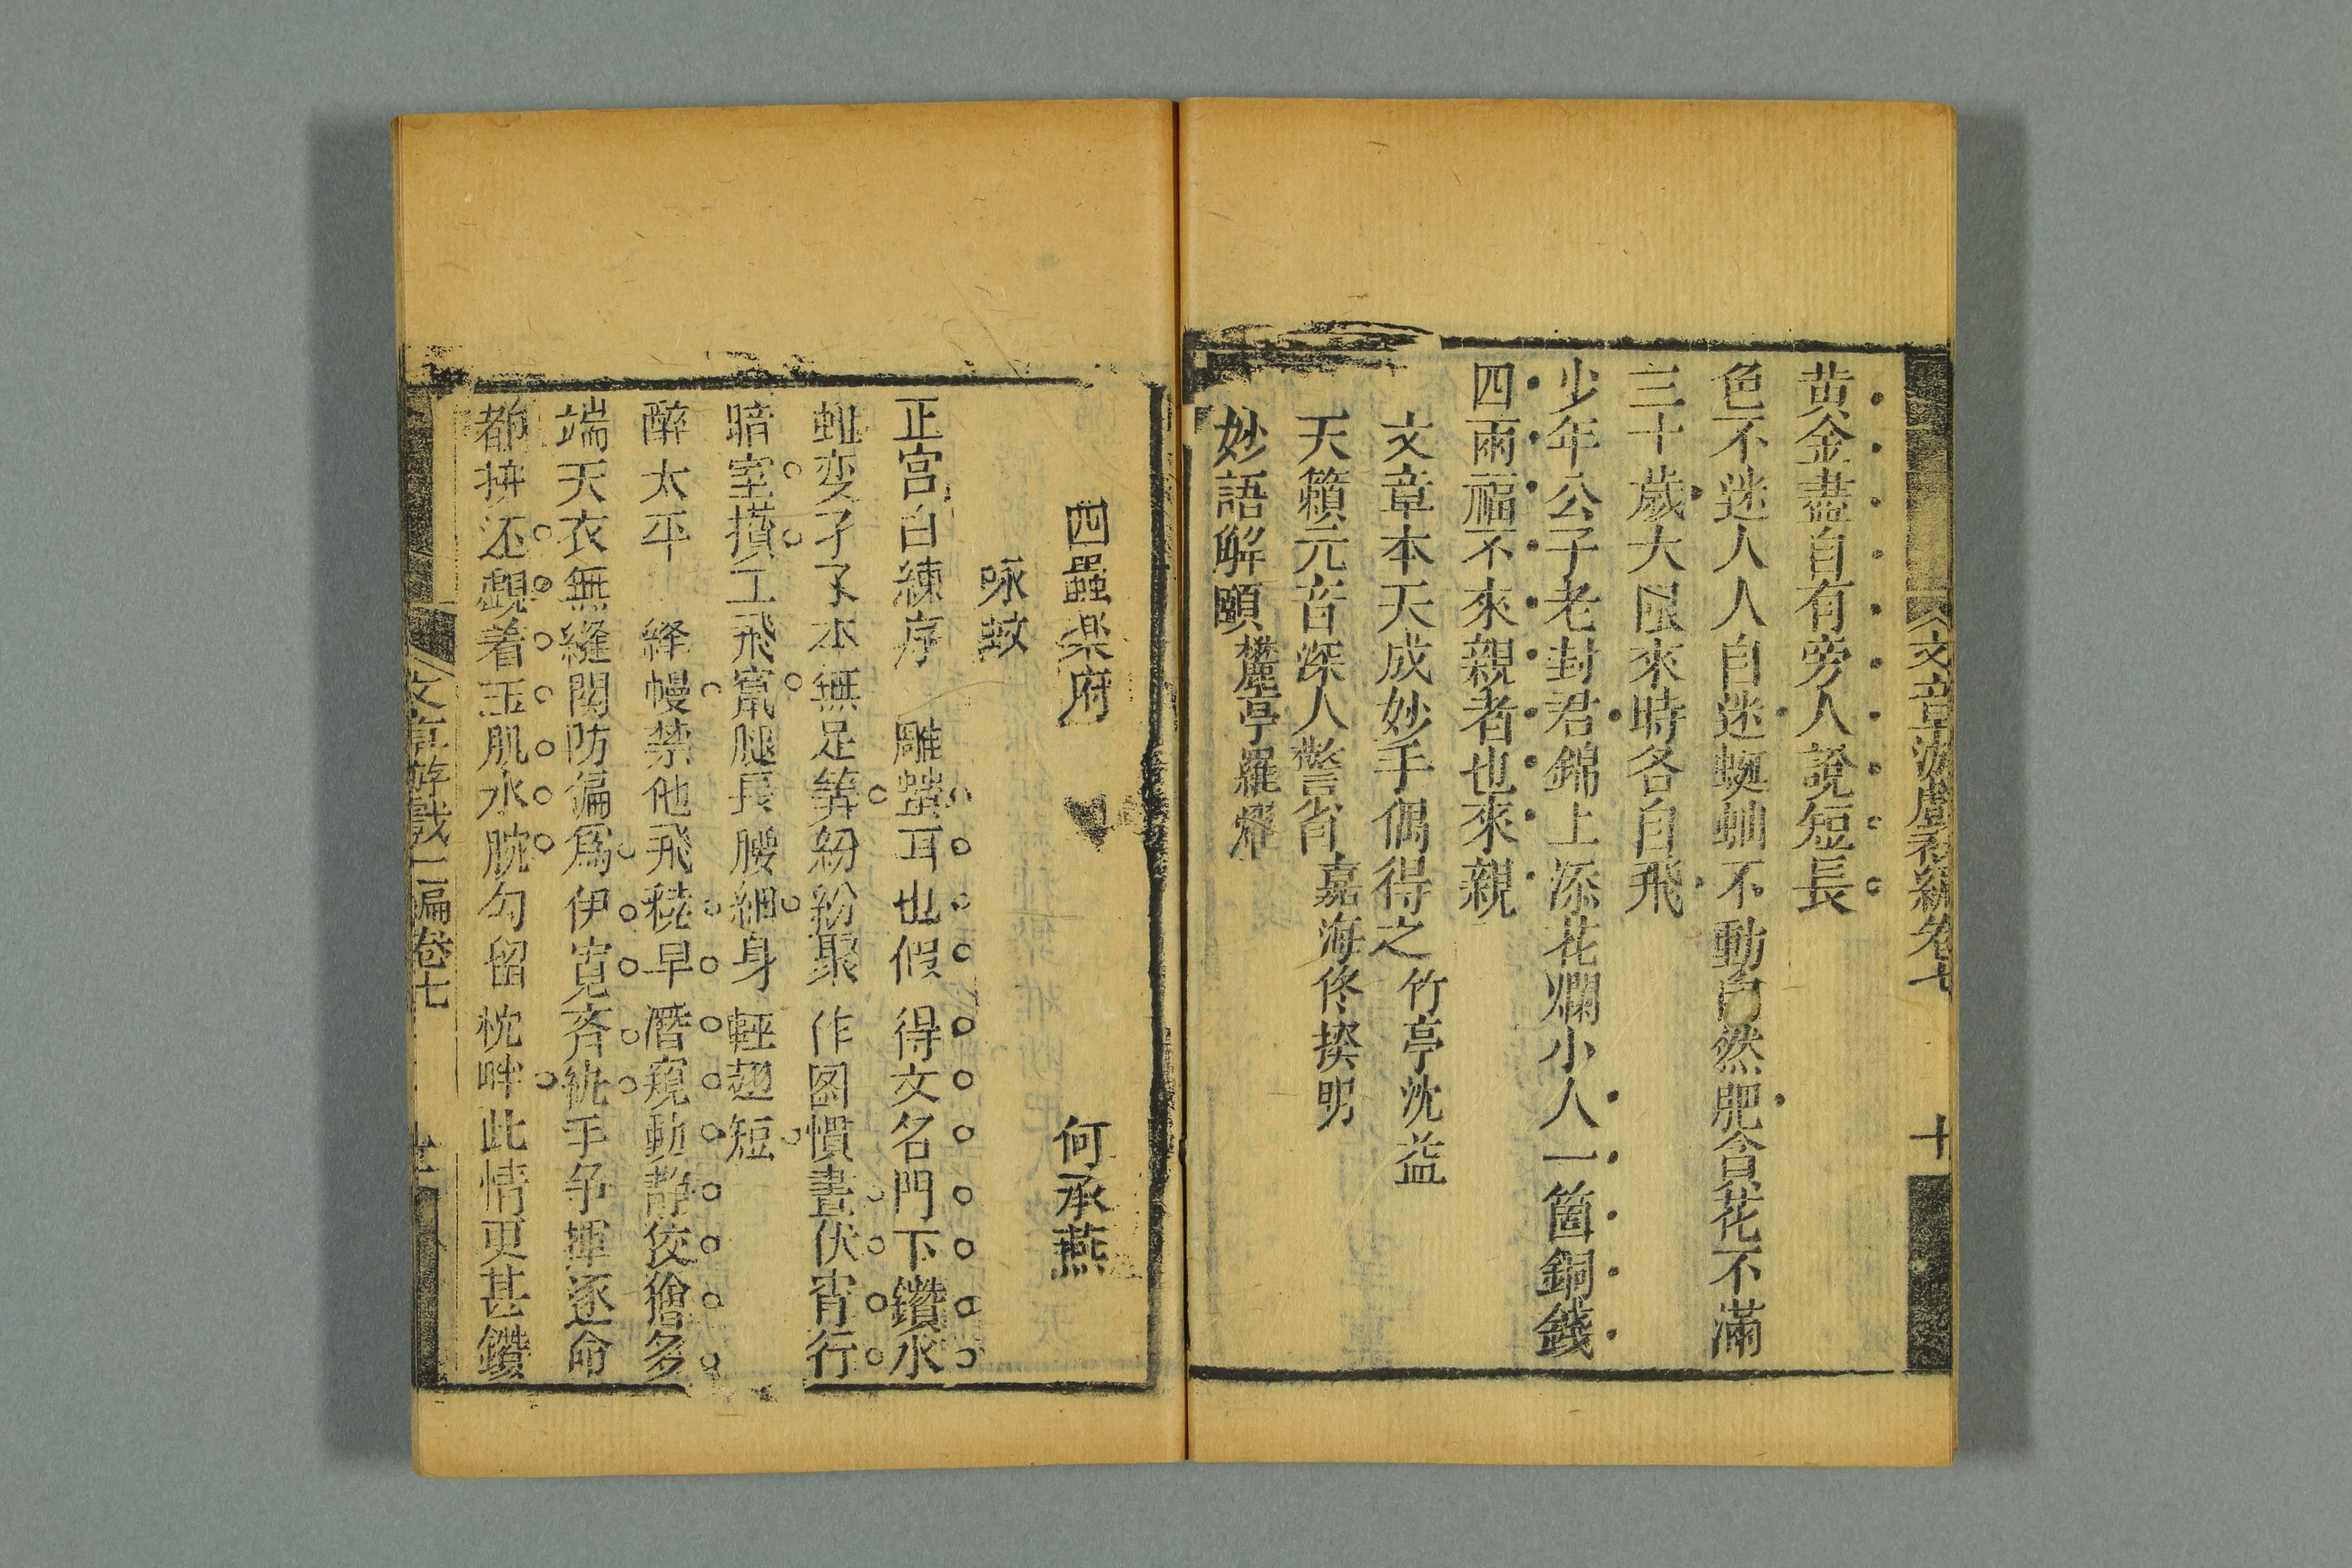 黄金盡自有旁人說短長
色不迷人人自迷蜒蚰不動自然肥貪花不滿
三十歲大限來時各自飛
少年公子老封君錦上添花爛小人一箇銅錢
四兩福不來親者也來親
文章本天成妙手偶得之 竹亭沈益
天籟元音深人警省 嘉海佟揆明
妙語解頤 麓亭羅燿
四蟲樂府 何承燕
咏蚊
正宫白練序 雕蟁耳也假得文名門下鑽氷
蚍変孑孓本無足筭紛紛聚作团慣晝伏宵行
暗室損工飛竄腿長腰細身輕翅短
醉太平 絳幔禁他飛繞早潛窺動静佼獪多
端天衣無縫関防偏爲伊寛斉紈手爭揮逐命
都拚还覷着玉肌氷腕勾留枕畔此情更甚鑽
文章游戲二編卷七